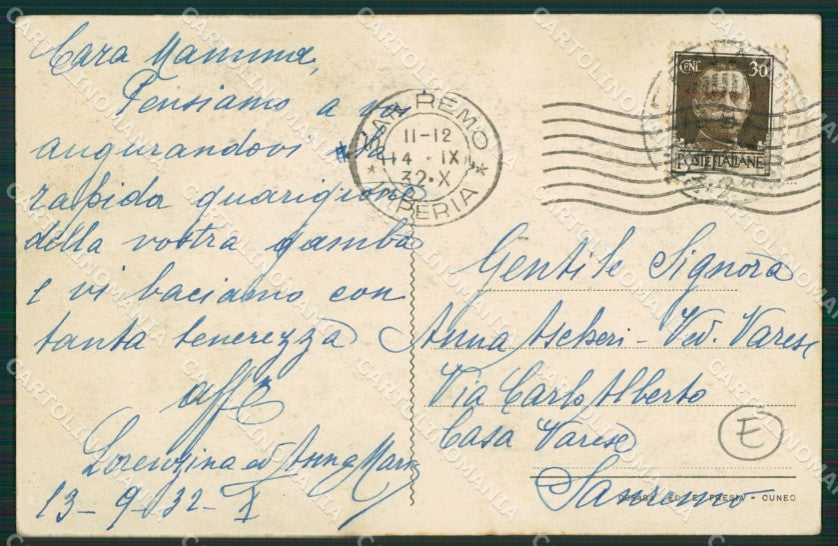 Cara Mamma,
Pensiamo a voi
augurandovi la
rapida guarigione
della vostra gamba
e vi baciamo con
tanta tenerezza
affe
Lorenzina ed Anna Maria
13-9-32-X
SAN REMO
11-12
14 · IX
32·X
IMPERIA
CENT. 30
POSTE ITALIANE
Gentile Signora
Anna Ascheri - Ved. Varese
Via Carlo Alberto
Casa Varese
Sanremo
E
ED. PRESIA - CUNEO
CARTOLINOMANIA